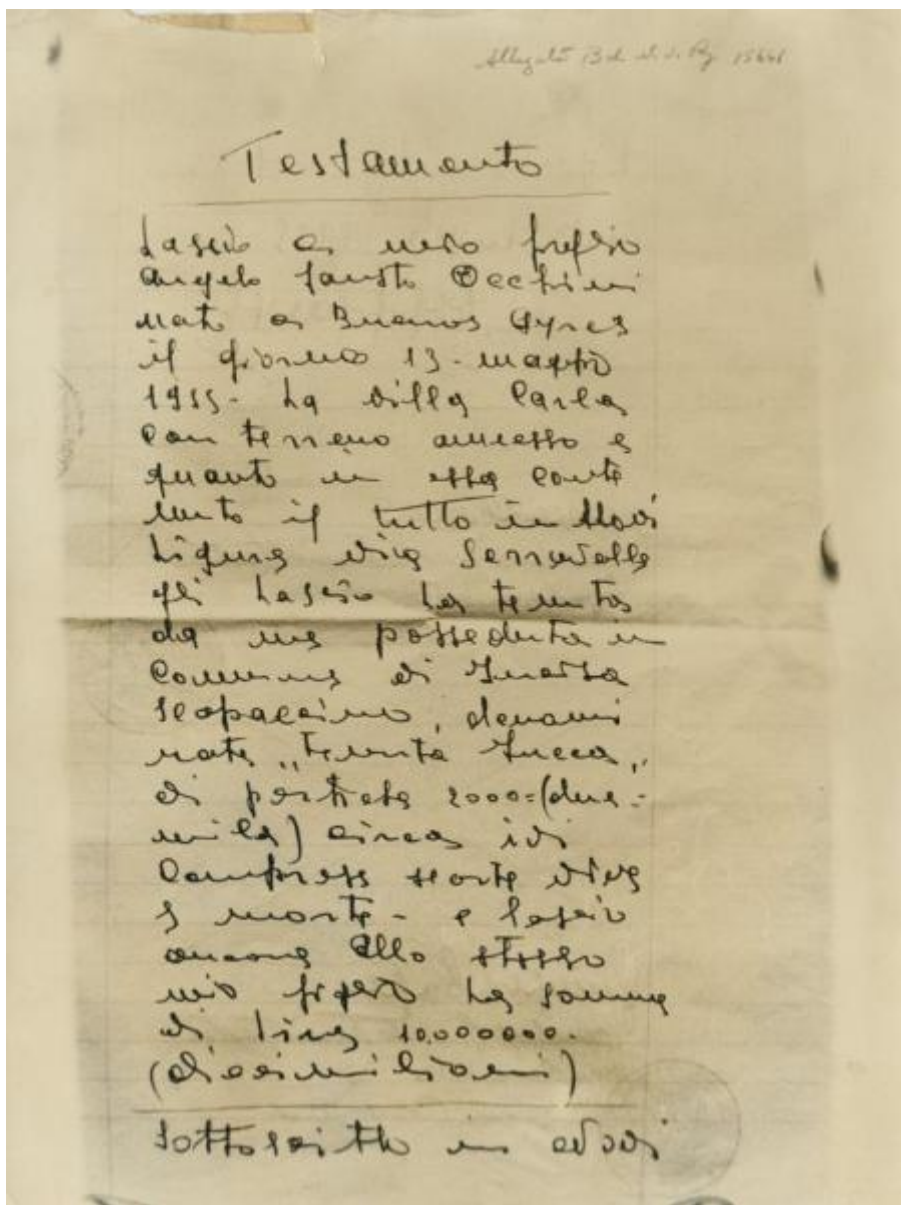 Allegato B al
Testamento
Lascio a mio figlio
Angelo Fausto Occhini
nato a Buenos Ayres
il giorno 13 - maggio
1955 - La villa Carla
con terreno annesso e
quanto in essa conte
nuto il tutto in Novi
Ligure via Serravalle
gli Lascio La tenuta
da me posseduta in
Comune di
denomi
nata „tenuta
di 2000=(due=
mila) circa ivi
Compresa scorte vive
e morte - e lascio
ancora allo stesso
mio figlio La somma
di Lire 10.000000.
(diecimilioni)
Sottoscritto in Novi